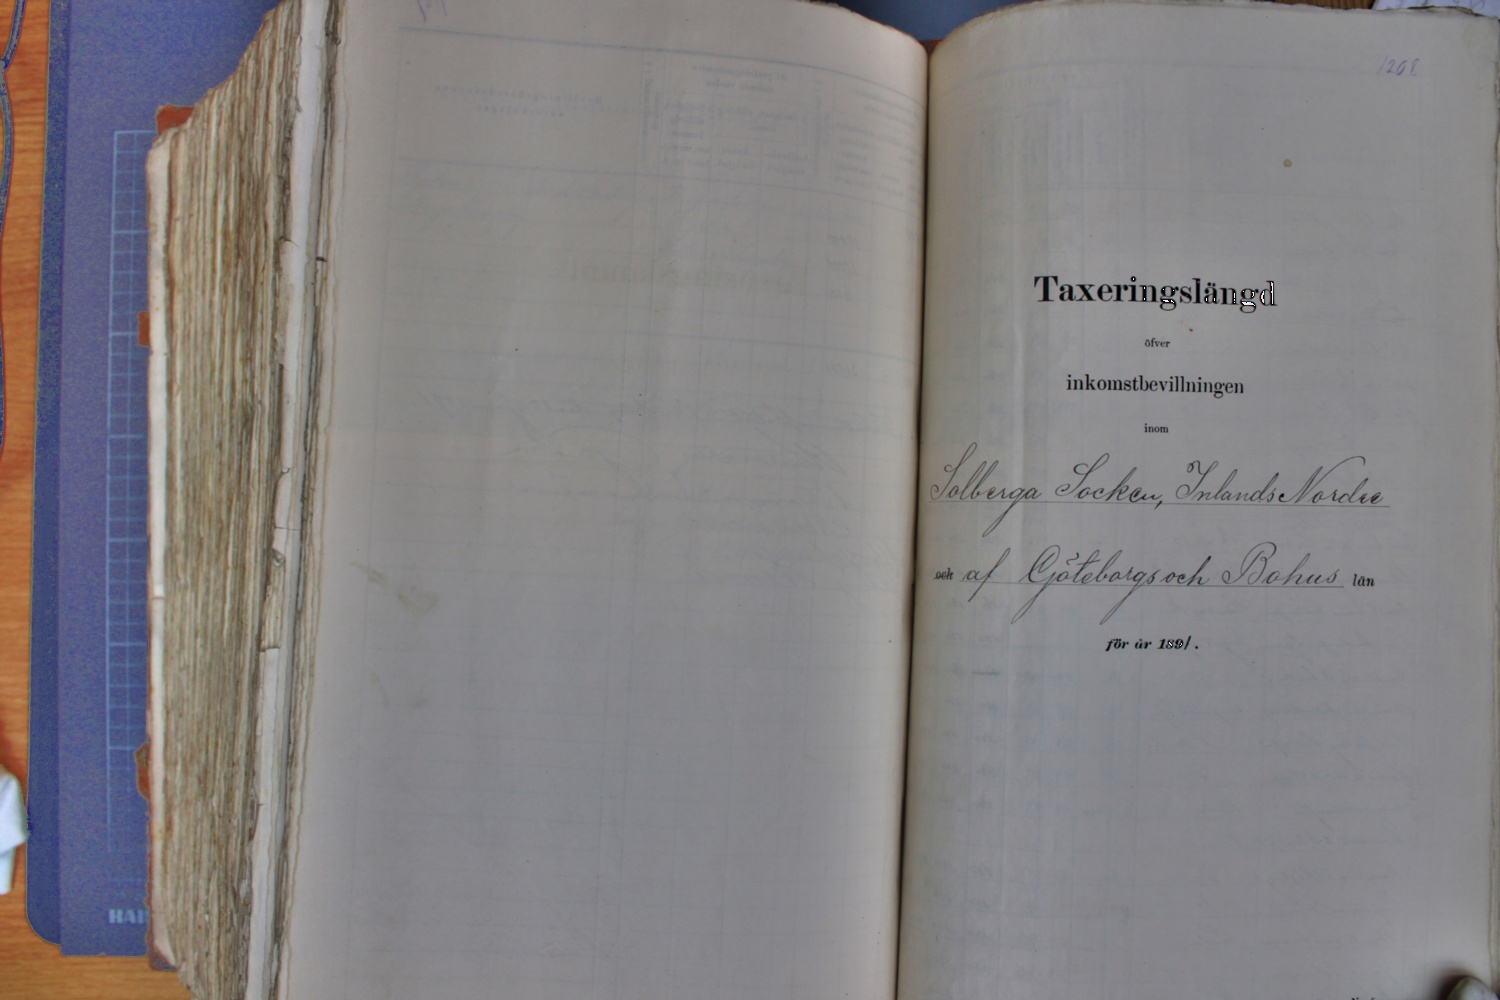 1208.
Taxeringslängd
öfver
inkomstbevillningen
inom
Solberga Socken, Inlands Nordre
och af Göteborgs och Bohus län
för år 1891.